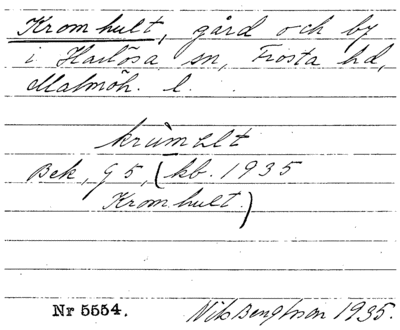 Kromhult, gård och by
i Harlösa sn, Frosta hd,
Malmöh. l.
krùmɛlt
Bek, G 5, (kb. 1935
Kromhult.)
Nr 5554. Nils Bengtsson 1935.